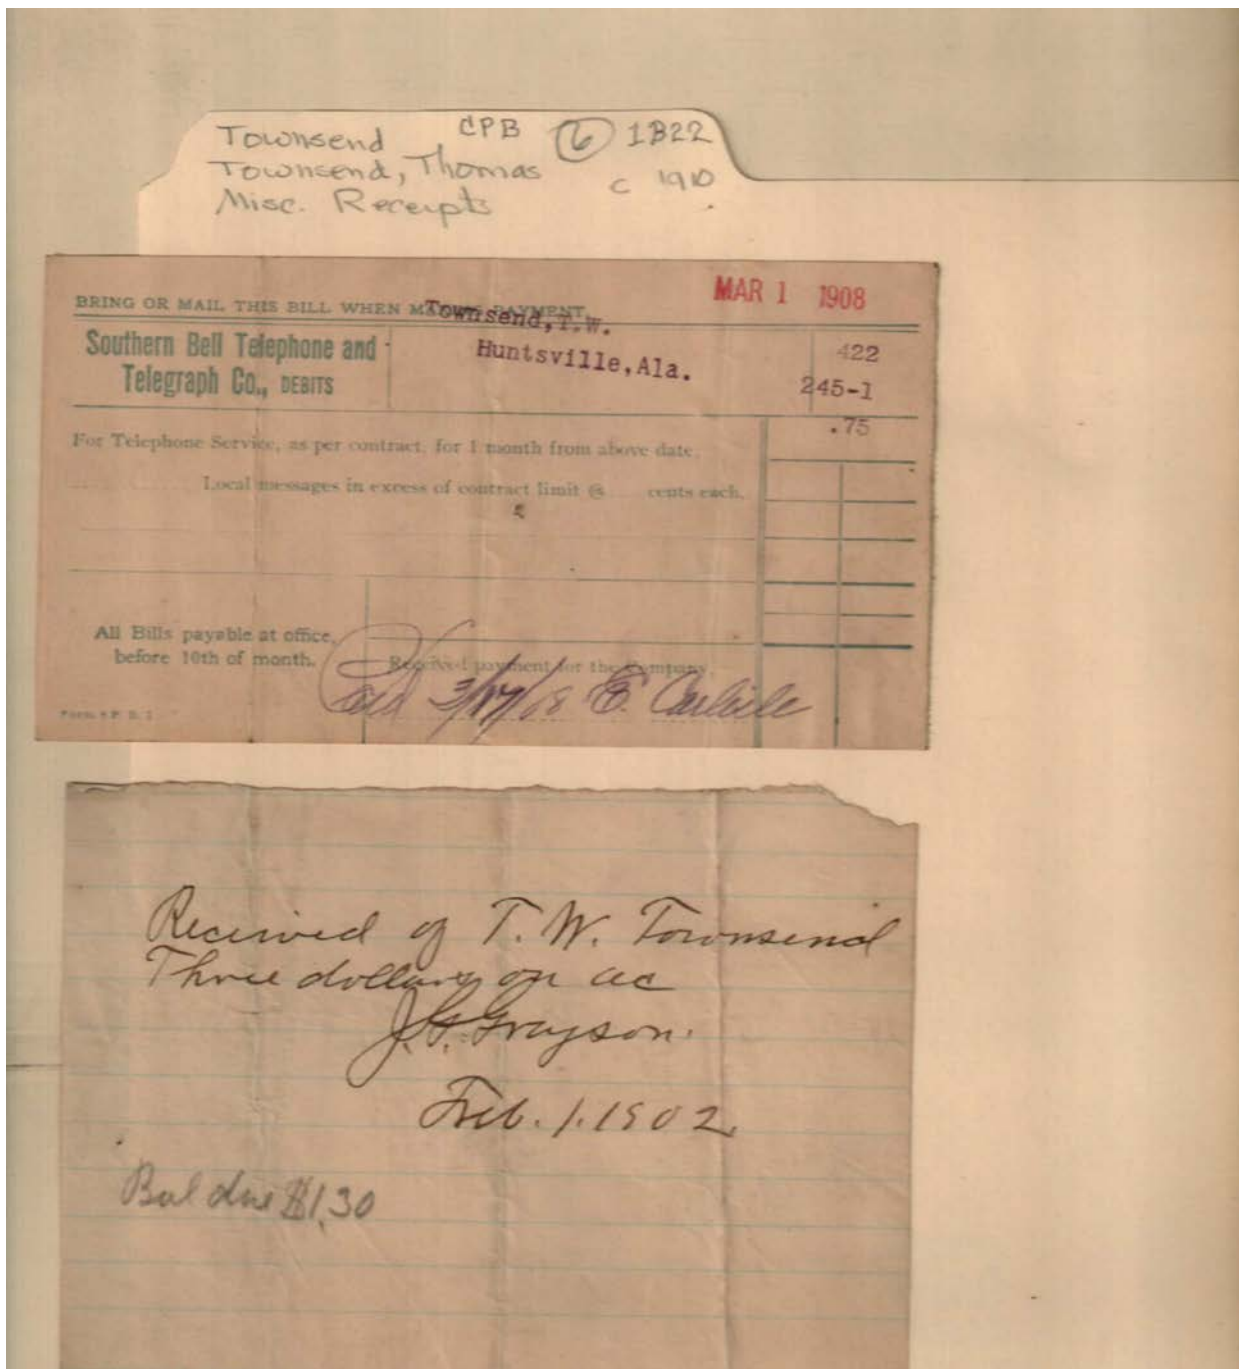 Townsend CPB 6 1B22
Townsend, Thomas c 1910
Misc. Receipts
MAR 1 1908
BRING OR MAIL THIS BILL WHEN MAKING PAYMENT
Townsend, T.W.
Southern Bell Telephone and
Huntsville, Ala. 422
Telegraph Co., DEBITS 245-1
.75
For Telephone Service, as per contract, for 1 month from above date.
Local messages in excess of contract limit @ cents each.
All Bills payable at office,
before 10th of month.
Received payment for the Company
Paid 3/17/08 E. Carlisle
Received of T. W. Townsend
Three dollars on ac
J. G. Grayson.
Feb. 1. 1902
Bal due $1.30